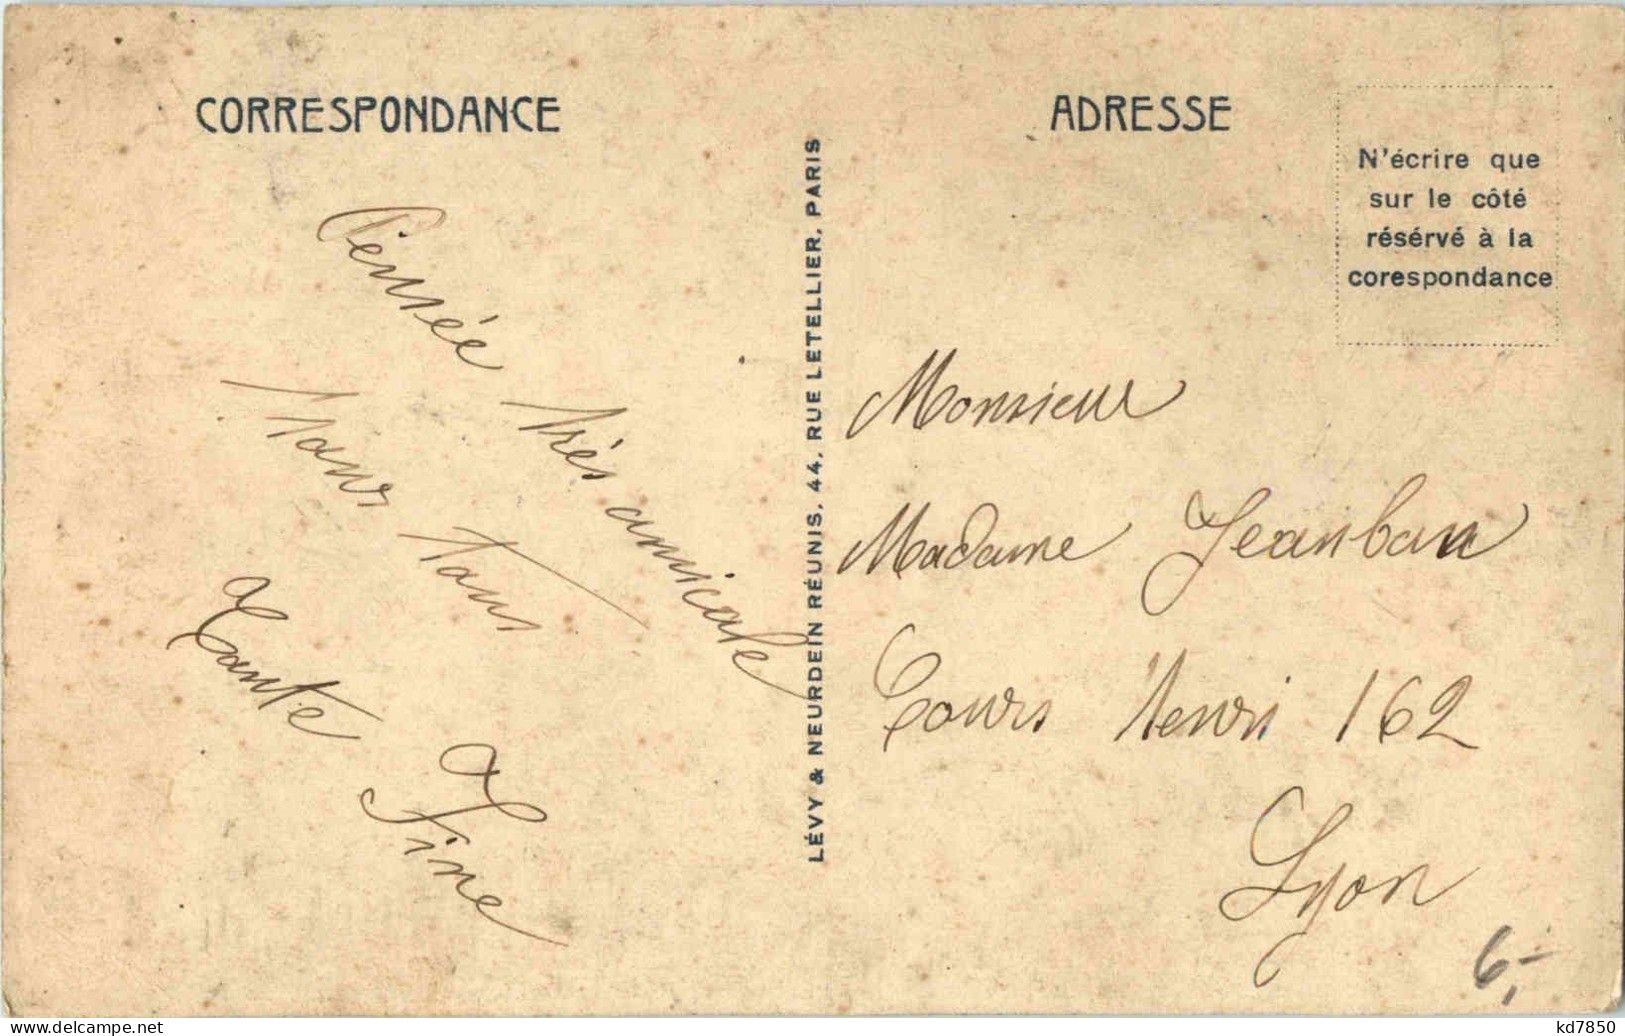 CORRESPONDANCE
Pensée très amicale
pour tous
Tante Fine
LÉVY & NEURDEIN RÉUNIS, 44, RUE LETELLIER, PARIS
ADRESSE
N'écrire que
sur le côté
résérvé à la
corespondance
Monsieur
Madame Jeanbau
Cours Henri 162
Lyon
6,-
kd7850